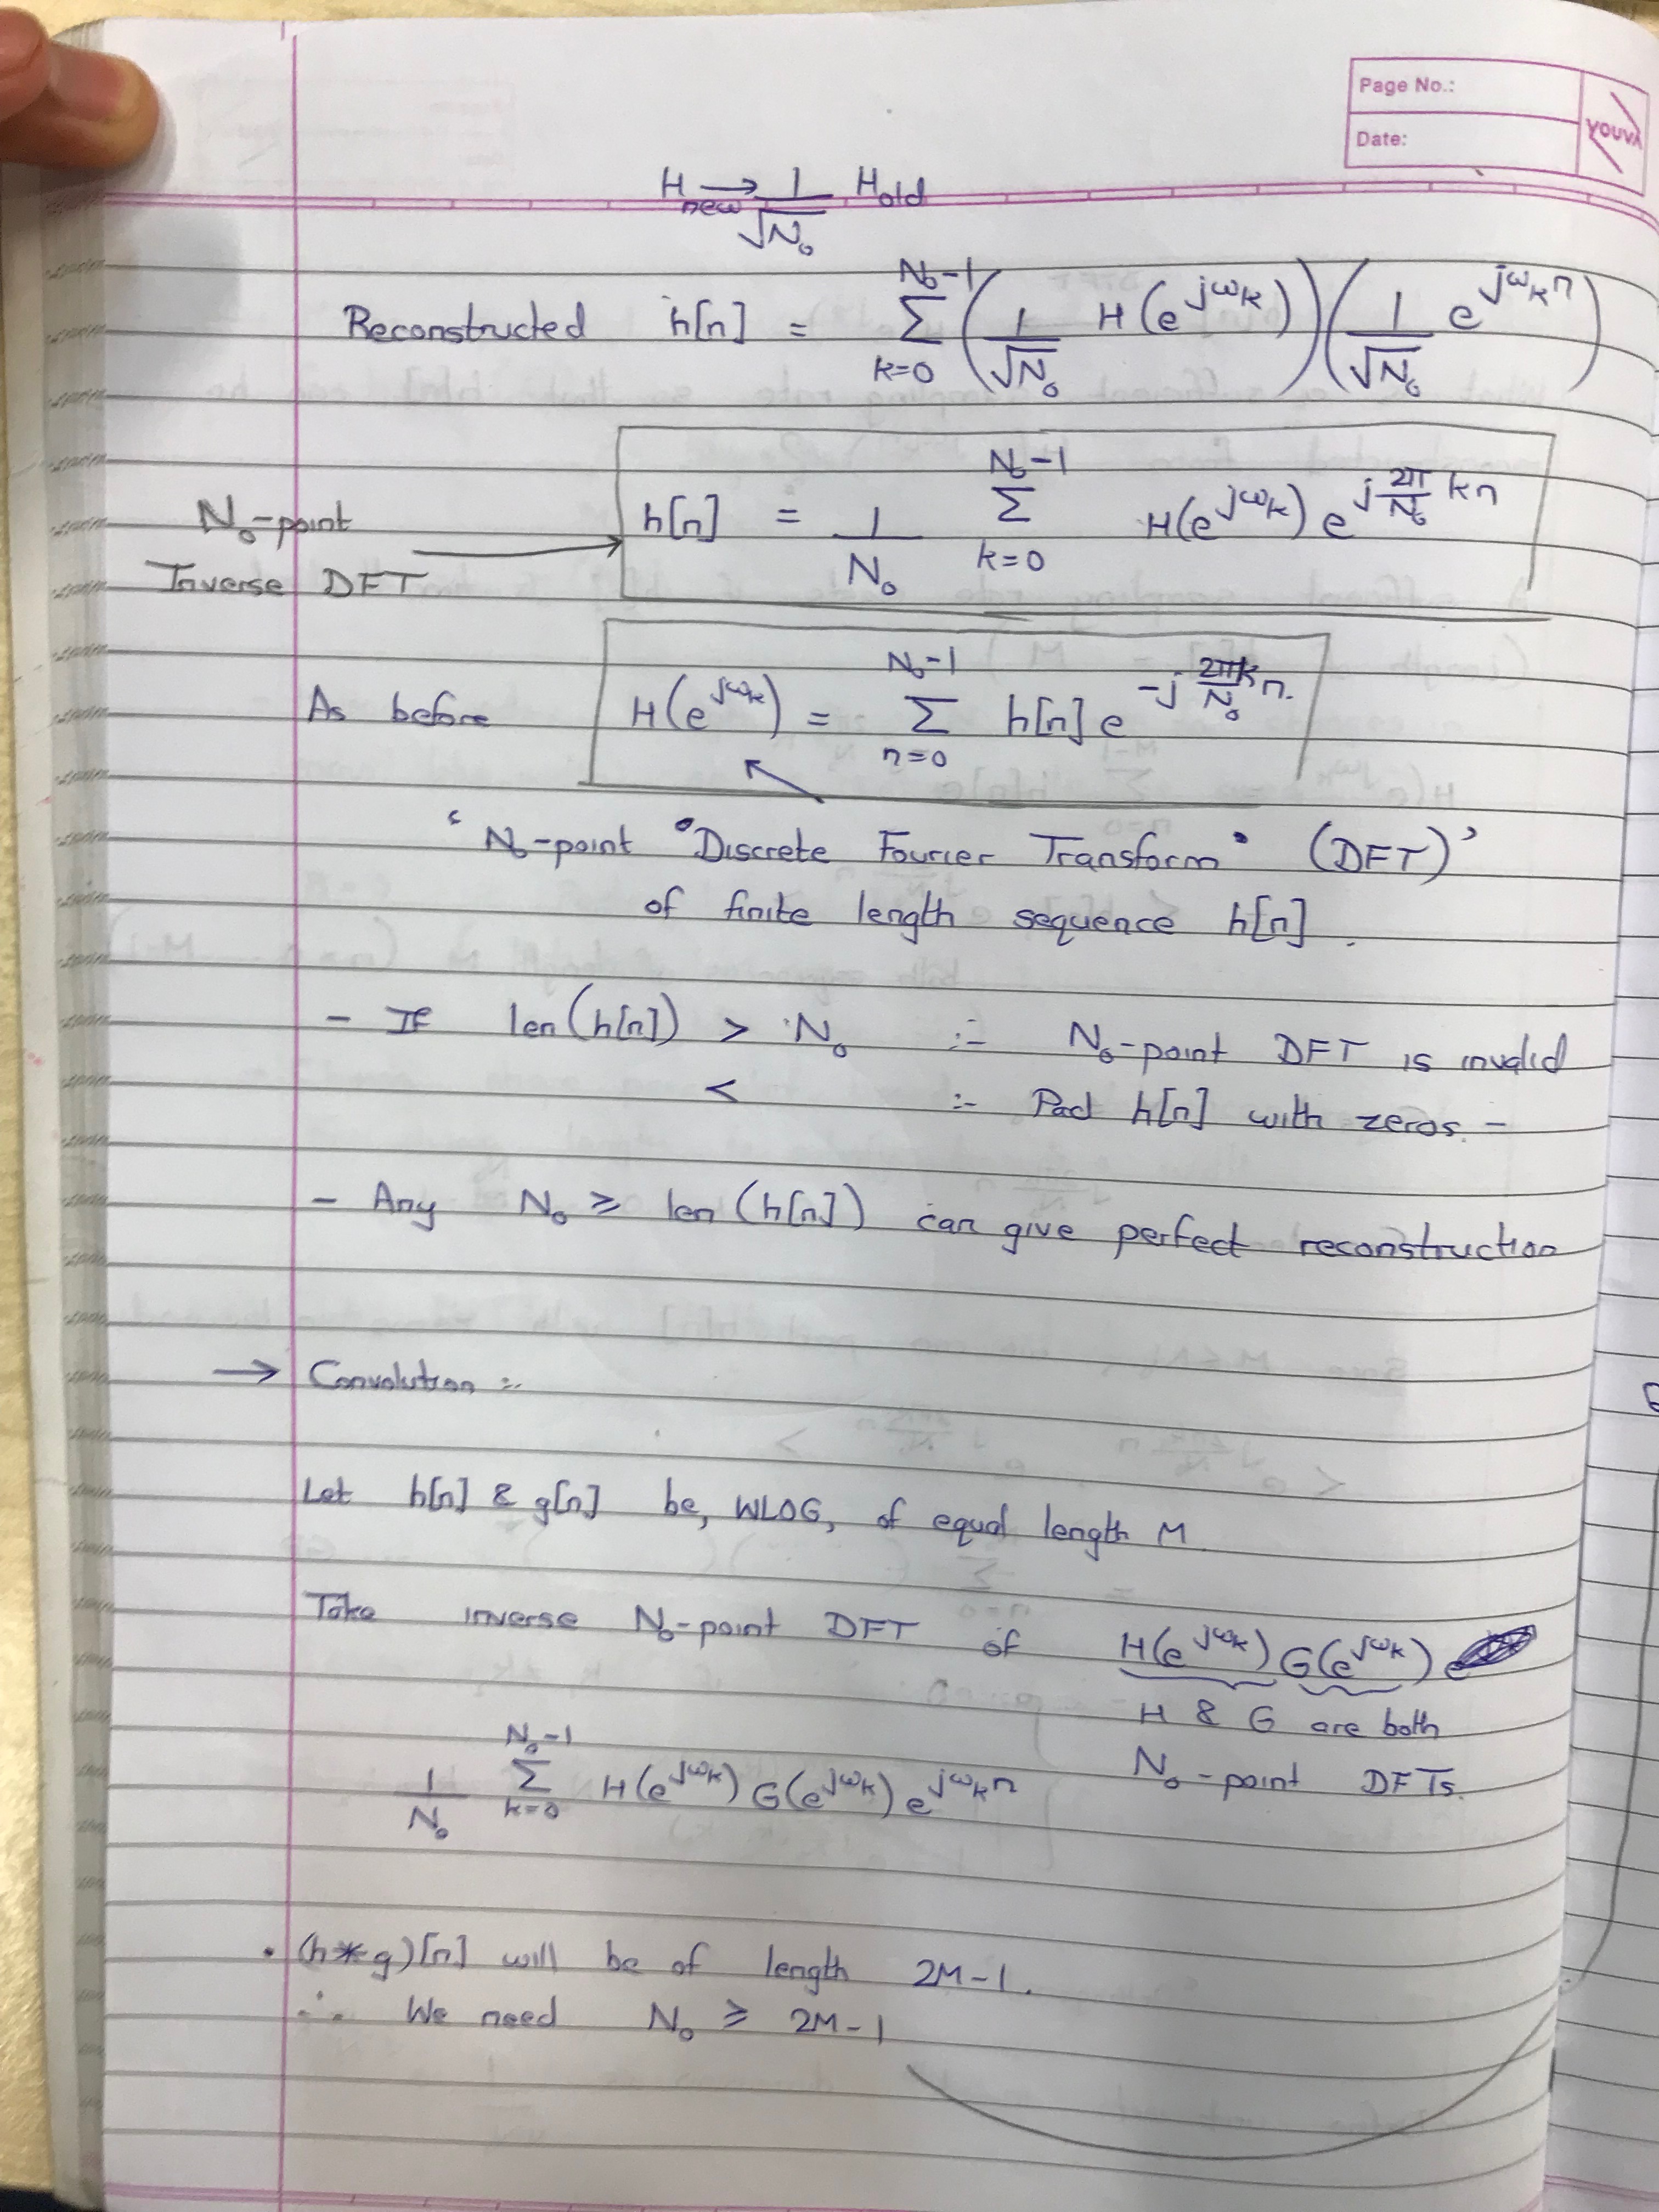 Page No.:
Date:
YOUVA
H_new → 1/√N₀ H_old
Reconstructed h[n] = Σ_{k=0}^{N₀-1} (1/√N₀ H(e^{jω_k})) (1/√N₀ e^{jω_k n})
h[n] = 1/N₀ Σ_{k=0}^{N₀-1} H(e^{jω_k}) e^{j 2π/N₀ kn}
N₀-point
Inverse DFT
As before H(e^{jω_k}) = Σ_{n=0}^{N₀-1} h[n] e^{-j 2πk/N₀ n}.
‘N₀-point "Discrete Fourier Transform" (DFT)’
of finite length sequence h[n].
- If len(h[n]) > N₀ :- N₀-point DFT is invalid
< :- Pad h[n] with zeros. -
- Any N₀ ≥ len(h[n]) can give perfect reconstruction
→ Convolution :-
Let h[n] & g[n] be, WLOG, of equal length M.
Take inverse N₀-point DFT of H(e^{jω_k}) G(e^{jω_k})
H & G are both
N₀-point DFTs.
1/N₀ Σ_{k=0}^{N₀-1} H(e^{jω_k}) G(e^{jω_k}) e^{jω_k n}
• (h*g)[n] will be of length 2M-1.
∴ We need N₀ ≥ 2M-1